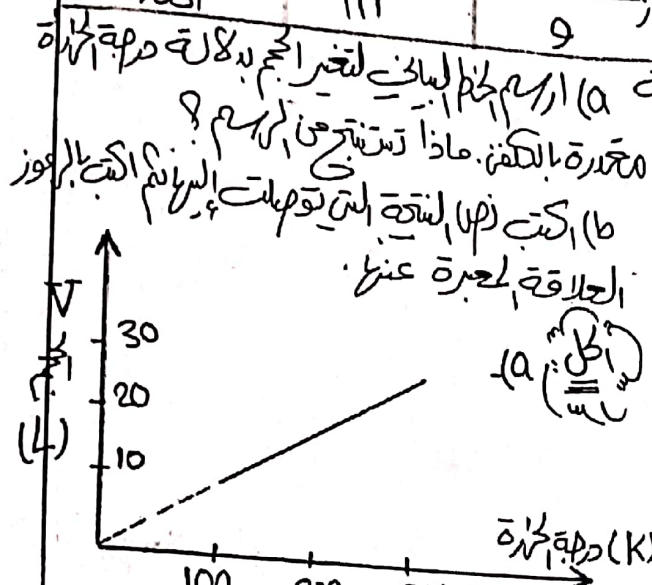 111
و
a) ارسم الخط البياني لتغير الحجم بدلالة درجة الحرارة
مقدرة بالكلفن. ماذا تستنتج من الرسم؟
b) اكتب نص النتيجة التي توصلت إليها ثم اكتب بالرموز
العلاقة المعبرة عنها.
الحل: a)-
V
الحجم
(L)
30
20
10
100
درجة الحرارة (K)